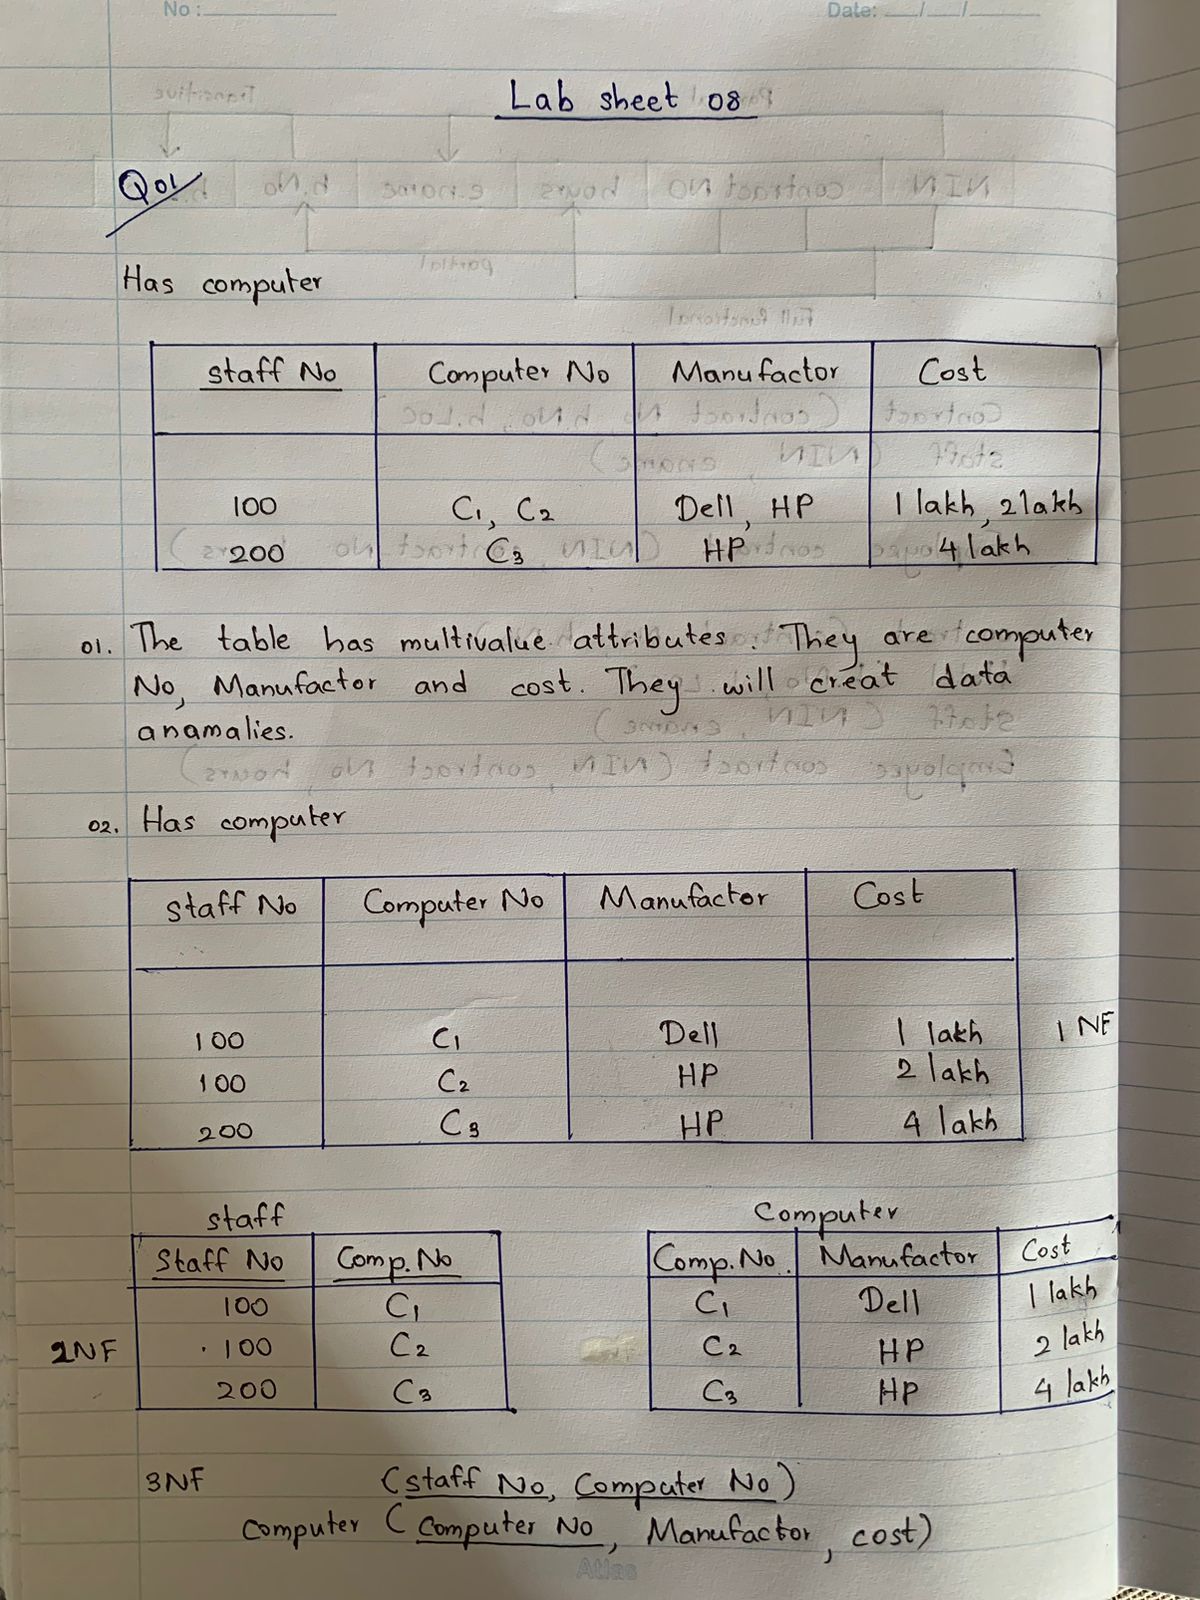 No :
Date: / /
Lab sheet 08
Q01
Has computer
staff No Computer No Manufactor Cost
100 C1, C2 Dell, HP 1 lakh, 2 lakh
200 C3 HP 4 lakh
01. The table has multivalue attributes. They are computer
No, Manufactor and cost. They will creat data
anamalies.
02. Has computer
staff No Computer No Manufactor Cost
100 C1 Dell 1 lakh 1 NF
100 C2 HP 2 lakh
200 C3 HP 4 lakh
staff Computer
Staff No Comp. No Comp. No. Manufactor Cost
100 C1 C1 Dell 1 lakh
2NF 100 C2 C2 HP 2 lakh
200 C3 C3 HP 4 lakh
3NF (staff No, Computer No)
Computer (Computer No, Manufactor, cost)
Atlas